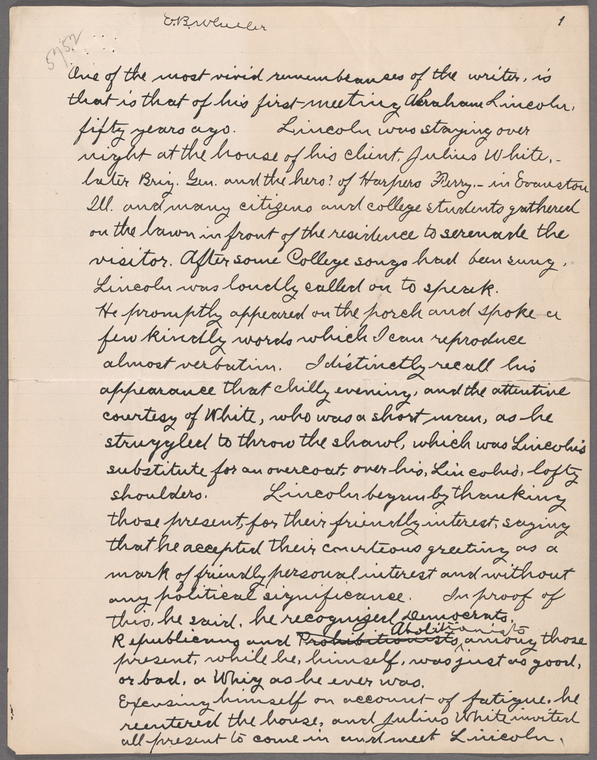 E.B. Wheeler
1
5752
One of the most vivid remembeanses of the writer, is
that is that of his first meeting Abraham Lincoln,
fifty years ago. Lincoln was staying over
night at the house of his client, Julius White, -
later Brig. Gen. and the hero? of Harpers Ferry, - in Evanston
Ill. and many citizens and college students gathered
on the lawn in front of the residence to serenade the
visitor. After some College songs had been sung,
Lincoln was loudly called on to speak.
He promptly appeared on the porch and spoke a
few kindly words which I can reproduce
almost verbatim. I distinctly recall his
appearance that chilly evening, and the attentive
courtesy of White, who was a short man, as he
struggled to throw the shawl, which was Lincoln's
substitute for an overcoat, over his, Lincoln's, lofty
shoulders. Lincoln began by thanking
those present, for their friendly interest, saying
that he accepted their courteous greeting as a
mark of friendly personal interest and without
any political significance. In proof of
this, he said, he recognised Democrats,
Abolitionists
Republicans and Prohibitionists, among those
present, while he, himself, was just as good,
or bad, a Whig as he ever was.
Excusing himself on account of fatigue, he
reentered the house, and Julius White invited
all present to come in and meet Lincoln.